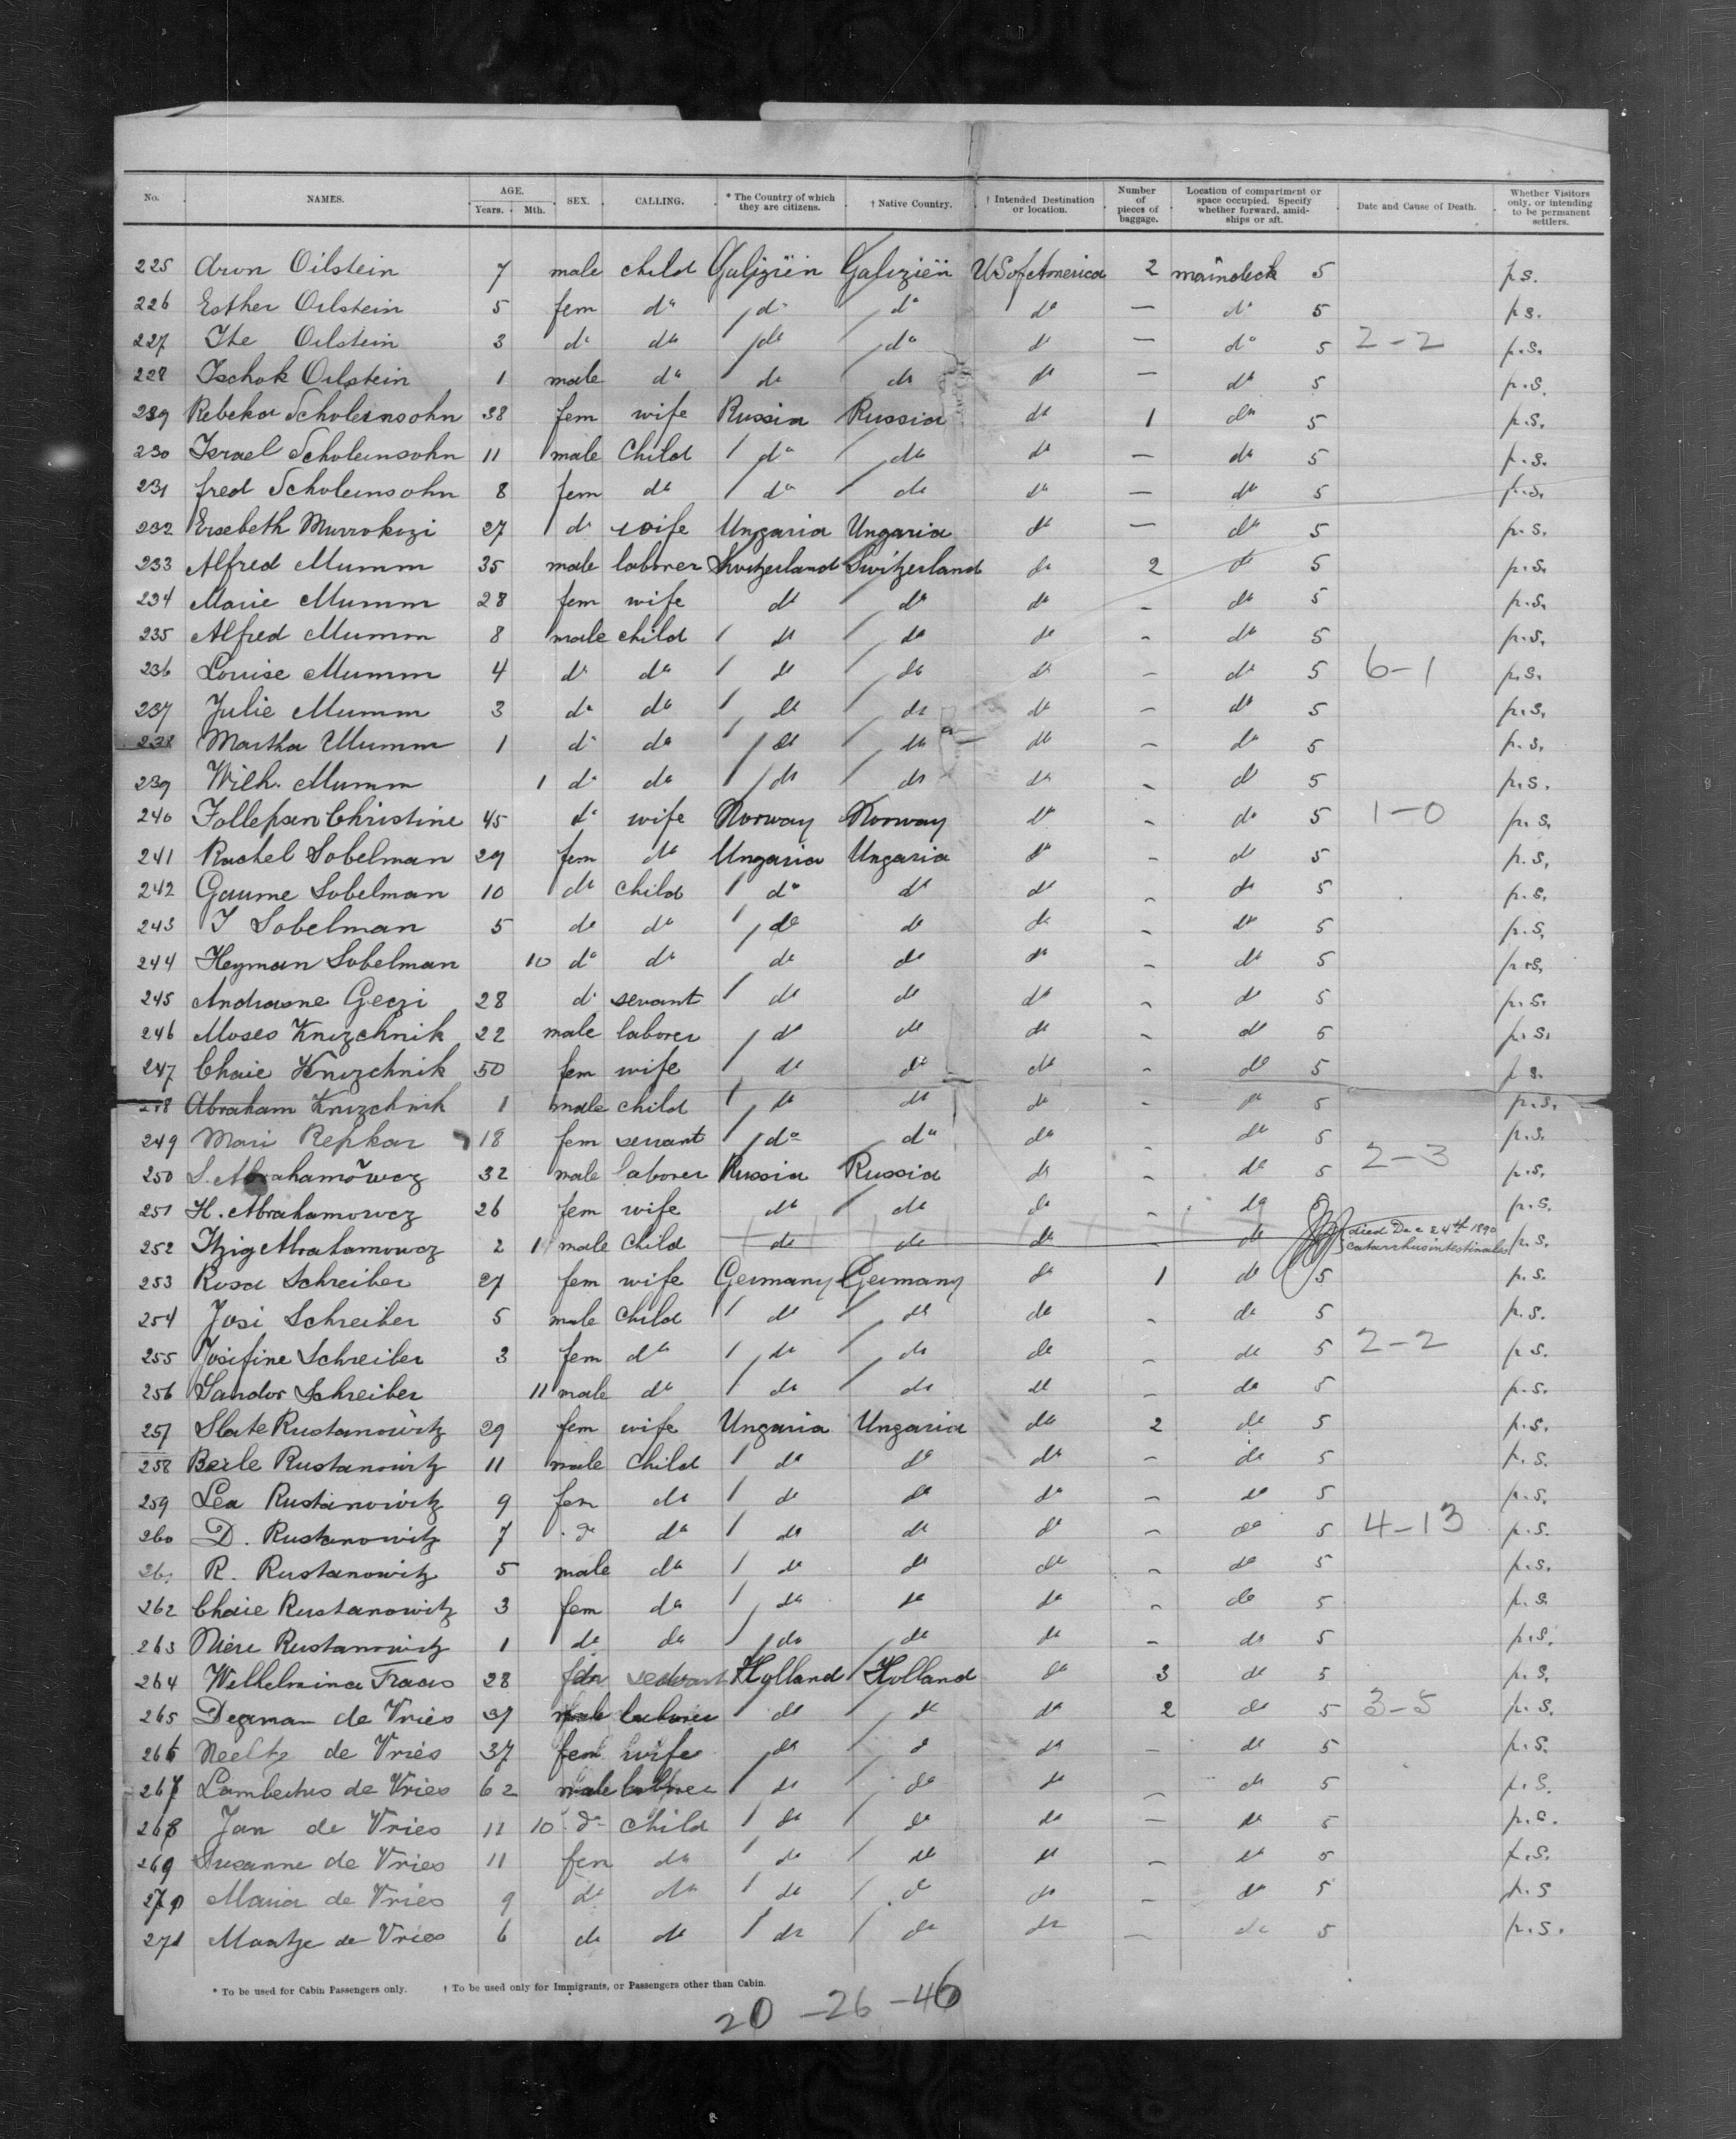 No. NAMES. AGE. Years. Mth. SEX. CALLING. * The Country of which they are citizens. † Native Country. † Intended Destination or location. Number of pieces of baggage. Location of compartment or space occupied. Specify whether forward, amidships or aft. Date and Cause of Death. Whether Visitors only, or intending to be permanent settlers.
225 Aron Oilstein 7 male child Galizien Galizien US of America 2 maindeck 5 p.s.
226 Esther Oilstein 5 fem do do do do — do 5 p.s.
227 Ite Oilstein 3 do do do do do — do 5 2-2 p.s.
228 Ischok Oilstein 1 male do do do do — do 5 p.s.
229 Rebeka Scholeinsohn 38 fem wife Russia Russia do 1 do 5 p.s.
230 Israel Scholeinsohn 11 male Child do do do — do 5 p.s.
231 fred Scholeinsohn 8 fem do do do do — do 5 p.s.
232 Ersebeth Murrokozi 27 do wife Ungaria Ungaria do — do 5 p.s.
233 Alfred Mumm 35 male laborer Switzerland Switzerland do 2 do 5 p.s.
234 Marie Mumm 28 fem wife do do do - do 5 p.s.
235 Alfred Mumm 8 male child do do do - do 5 p.s.
236 Louise Mumm 4 do do do do do - do 5 6-1 p.s.
237 Julie Mumm 3 do do do do do - do 5 p.s.
238 Martha Mumm 1 do do do do do - do 5 p.s.
239 Wilh. Mumm 1 do do do do do - do 5 p.s.
240 Follepsen Christine 45 do wife Norway Norway do - do 5 1-0 p.s.
241 Rachel Sobelman 29 fem do Ungaria Ungaria do - do 5 p.s.
242 Gaume Sobelman 10 do child do do do - do 5 p.s.
243 I Sobelman 5 do do do do do - do 5 p.s.
244 Heyman Sobelman 10 do do do do do - do 5 p.s.
245 Andrasne Geczi 28 do servant do do do - do 5 p.s.
246 Moses Knizchnik 22 male laborer do do do - do 5 p.s.
247 Chaie Knizchnik 50 fem wife do do do - do 5 p.s.
248 Abraham Knizchnik 1 male child do do do - do 5 p.s.
249 Mari Repkar 18 fem servant do do do - do 5 p.s.
250 S. Abrahamowcz 32 male laborer Russia Russia do - do 5 2-3 p.s.
251 H. Abrahamowcz 26 fem wife do do do - do 5 p.s.
252 Itzig Abrahamowcz 2 1 male child do do do - do died Dec 24th 1890 catarrhus intestinales p.s.
253 Rosa Schreiber 27 fem wife Germany Germany do 1 do 5 p.s.
254 Josi Schreiber 5 male child do do do - do 5 p.s.
255 Josifine Schreiber 3 fem do do do do - do 5 2-2 p.s.
256 Sandor Schreiber 11 male do do do do - do 5 p.s.
257 Slate Rustanowitz 29 fem wife Ungaria Ungaria do 2 do 5 p.s.
258 Berle Rustanowitz 11 male Child do do do - do 5 p.s.
259 Lea Rustanowitz 9 fem do do do do - do 5 p.s.
260 D. Rustanowitz 7 do do do do do - do 5 4-13 p.s.
261 R. Rustanowitz 5 male do do do do - do 5 p.s.
262 Chaie Rustanowitz 3 fem do do do do - do 5 p.s.
263 Niere Rustanowitz 1 do do do do do - do 5 p.s.
264 Welhelmina 28 fem servant Holland Holland do 3 do 5 p.s.
265 Degman de Vries 37 male laborer do do do 2 do 5 3-5 p.s.
266 Neeltz de Vries 37 fem wife do do do - do 5 p.s.
267 Lambertus de Vries 62 male laborer do do do - do 5 p.s.
268 Jan de Vries 11 10 do child do do do - do 5 p.s.
269 Susanne de Vries 11 fem do do do do - do 5 p.s.
270 Maria de Vries 9 do do do do do - do 5 p.s
271 Maatze de Vries 6 do do do do do - do 5 p.s.
* To be used for Cabin Passengers only. † To be used only for Immigrants, or Passengers other than Cabin.
20 - 26 - 46